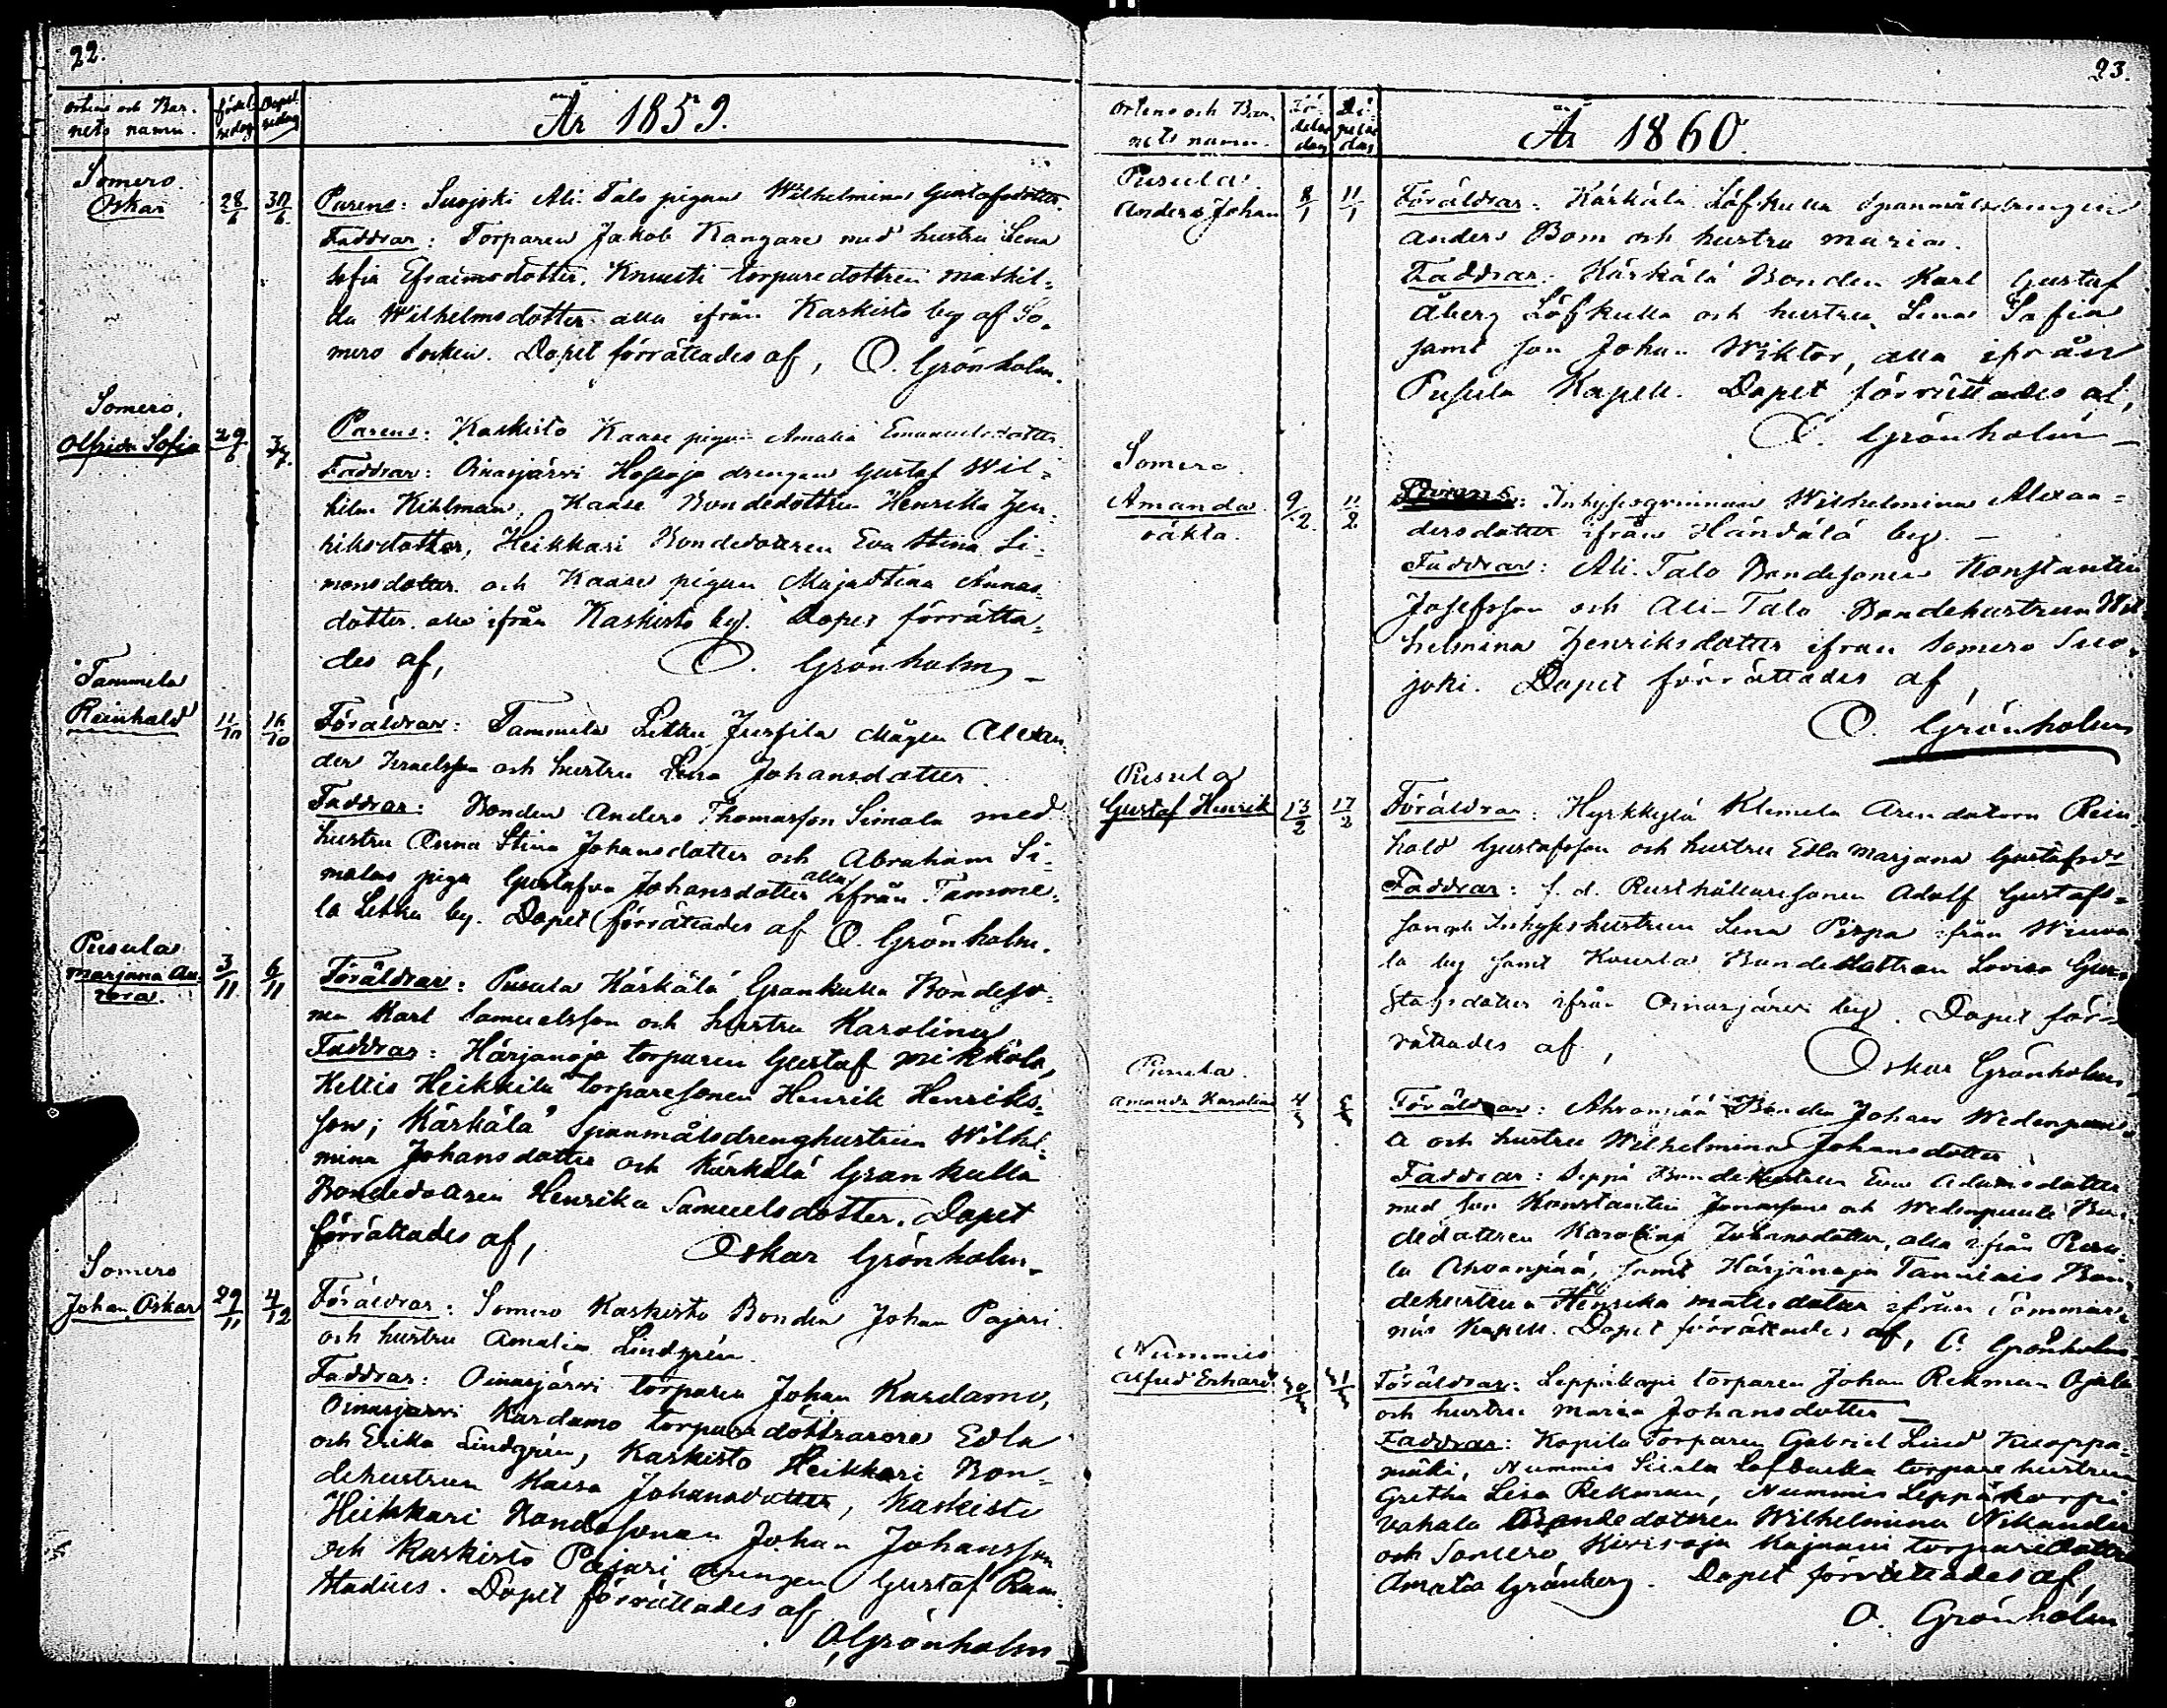 22.
Ortens och Bar-
nets namn.
födel
sedag
Döpel
sedag
År 1859.
Somero.
Oskar
28/6
30/6
Parens: Suojoki Ali-Talo pigan Wilhelmina Gustafsdotter.
Faddrar: Torparen Jakob Kangare med hustru Lena
Sofia Efraimsdotter. Knuuti torparedottren Mathil-
da Wilhelmsdotter alla ifrån Kaskisto by af So-
mero Socken. Dopet förrättades af, O. Grönholm.
Somero.
Olfrida Sofia
29/6
3/7.
Parens: Kaskisto Kaase pigan Amalia Emanuelsdotter
Faddrar: Oinasjärwi Hossoja drengen Gustaf Wil-
helm Kihlman, Kaase Bondedottren Henrika Hen-
riksdotter, Heikkari Bondedottren Eva Stina Si-
monsdotter och Kaase pigan Maja Stina Annas-
dotter alla ifrån Kaskisto by. Dopet förrätta-
des af, O. Grönholm
Tammela
Reinhold
11/10
16/10
Föräldrar: Tammela Letku Jussila Mågen Alexan-
der Israelsson och hustru Lena Johansdotter.
Faddrar: Bonden Anders Thomasson Simala med
hustru Anna Stina Johansdotter och Abraham Si-
malas piga Gustafva Johansdotter alla ifrån Tamme-
la Letku by. Dopet förrättades af O. Grönholm.
Pusula
Marjana Au-
rora.
3/11
6/11
Föräldrar: Pusula Kärkälä Grankulla Bondeso-
nen Karl Samuelsson och hustru Karolina
Faddrar: Härjanoja torparen Gustaf Mikkola,
Keltis Heikkilä Torparesonen Henrik Henriks-
son; Kärkälä Spanmålsdrenghustrun Wilhel-
mina Johansdotter och Kärkälä Grankulla
Bondedottren Henrika Samuelsdotter. Dopet
förrättades af, Oskar Grönholm.
Somero
Johan Oskar
29/11
4/12
Föräldrar: Somero Kaskisto Bonden Johan Pajari
och hustru Amalia Lindgrén.
Faddrar: Oinasjärwi torparen Johan Kardamo,
Oinasjarwi Kardamo torparedöttrarne Edla
och Erika Lindgrén, Kaskisto Heikkari Bon-
dehustrun Kaisa Johansdotter, Kaskisto
Heikkari Bondesonen Johan Johansson
och Kaskisto Pajari drengen Gustaf Ram-
stadius. Dopet förrättades af
O. Grönholm
23.
Ortens och Bar-
nets namn.
Fö-
delse
dag
Dö-
pelse
dag
År 1860.
Pusula.
Anders Johan
8/1
11/1
Föräldrar: Kärkälä Löfkulla Spanmålsdrengen
Anders Bom och hustru Maria.
Faddrar: Kärkälä Bonden Karl Gustaf
Åberg Löfkulla och hustru Lena Sofia
samt son Johan Wiktor, alla ifrån
Pusula Kapell. Dopet förrättades af,
O. Grönholm
Somero.
Amanda.
oäkta.
9/2
11/2
Parens: Inhysesqvinnan Wilhelmina Alexan-
dersdotter ifrån Händälä by.
Faddrar: Ali-Talo Bondesonen Konstantin
Josefsson och Ali-Talo Bondehustrun Wil-
helmina Henriksdotter ifrån Somero Suo-
joki. Dopet förrättades af,
O. Grönholm
Pusula
Gustaf Henrik
13/2
17/2
Föräldrar: Hyrkkylä Klemela Arendatorn Rein-
hold Gustafsson och hustru Edla Marjana Gustafsdr
Faddrar: f. d. Rusthållaresonen Adolf Gustafs-
son och Inhyseshustrun Lena Pispa ifrån
la by samt Bondedottren Lovisa Gus-
tafsdotter ifrån Oinasjärwi by. Dopet för-
rättades af, Oskar Grönholm
Pusula.
Amanda Karolina
Föräldrar: Ahvonpää Bonden Johan
och hustru Wilhelmina Johansdotter
Faddrar: Seppä Bondehustrun Eva Adamsdotter
med son Konstantin och Bon-
dedottren Karolina Johansdotter, alla ifrån Pusu-
la Ahvonpää, samt Härjänoja Bon-
dehustrun Henrika Matsdotter ifrån Sommar-
näs Kapell. Dopet förrättades af, O. Grönholm
Nummis
Alfred Erhard.
Föräldrar: Leppäkorpi torparen Johan Rekman Ojala
och hustru Maria Johansdotter
Faddrar: Kopila Torparen Gabriel Lind Knoppa-
mäki, Nummis torpare hustrun
Gretha Lisa Rekman, Nummis Leppäkorpi
Vahala Bondedottren Wilhelmina Nikander
och Somero torparedottren
Amalia Grönberg. Dopet förrättades af,
O. Grönholm